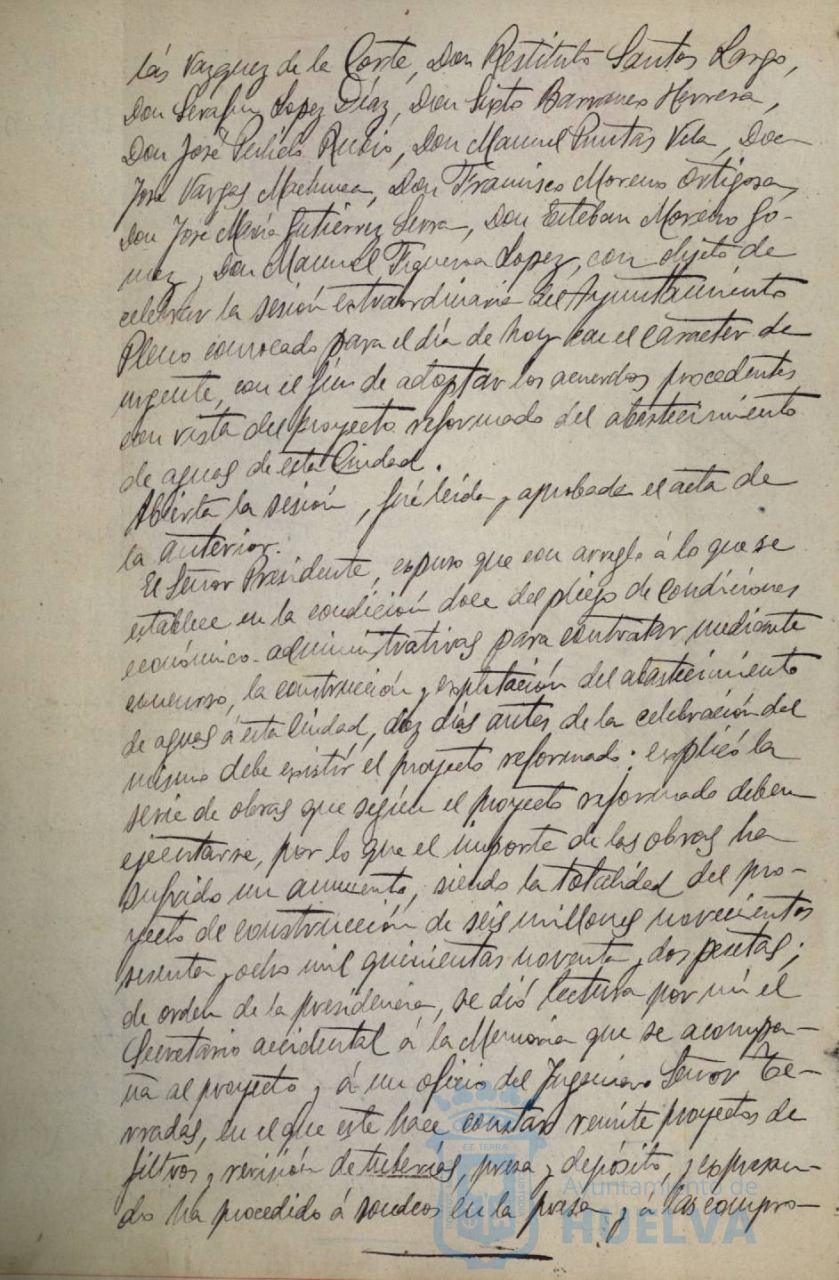 lás Vazquez de la Corte, Don Restituto Santos Largo,
Don Serafin Lopez Díaz, Don Sixto Barranco Herrera,
Don José Pulido Rubio, Don Manuel Puntas Vela, Don
José Vargas Machuca, Don Francisco Moreno Ortigosa,
Don José María Gutiérrez Serra, Don Esteban Moreno Go-
mez y Don Manuel Figueroa Lopez, con objeto de
celebrar la sesión extraordinaria del Ayuntamiento
Pleno convocado para el día de hoy con el caracter de
urgente, con el fin de adoptar los acuerdos procedentes
con vista del proyecto reformado del abastecimiento
de aguas de esta Ciudad.
Abierta la sesión, fué leída y aprobada el acta de
la anterior.
El Señor Presidente, expuso que con arreglo á lo que se
establece en la condición doce del pliego de condiciones
económico-administrativas para contratar, mediante
concurso, la construcción y explotación del abastecimiento
de aguas á esta Ciudad, diez días antes de la celebración del
mismo debe existir el proyecto reformado; explicó la
serie de obras que según el proyecto reformado deben
ejecutarse, por lo que el importe de las obras ha
sufrido un aumento, siendo la totalidad del pro-
yecto de construcción de seis millones novecientos
sesenta y ocho mil quinientas noventa y dos pesetas;
de orden de la presidencia, se dió lectura por mí el
Secretario accidental á la Memoria que se acompa-
ña al proyecto y á un oficio del Ingeniero Señor Te-
rradas, en el que este hace constar remite proyectos de
filtros y revisión de tuberías, presa y depósito, y expresan-
do ha procedido á sondeos en la presa y á las compro-
Ayuntamiento de
HUELVA